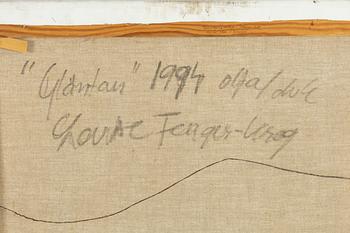 "Gläntan" 1994 olja/duk
Louise Fenger-Krog